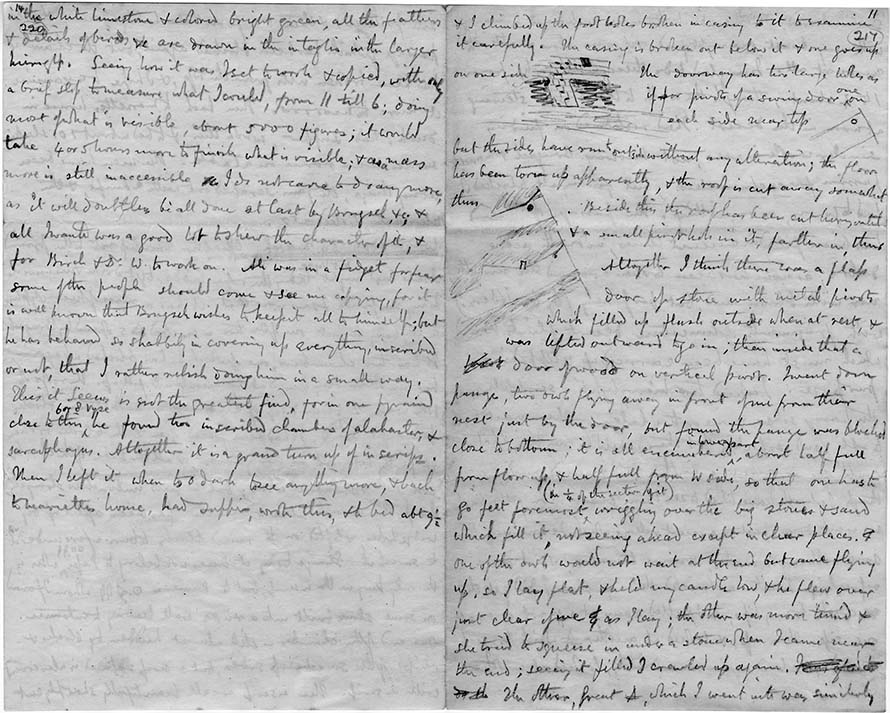 14
220
in the white limestone & colored bright green, all the feathers
& details of birds &c are drawn in the intaglio in the larger
hierogs. Seeing how it was I set to work & copied, with only
a brief slip to measure what I could, from 11 till 6; doing
most of what is visible, about 5000 figures; it would
take 4 or 5 hours more to finish what is visible, & a mass
more is still inaccessible. I do not care to do any more,
as it will doubtless be all done at last by Brugsch &c, &
all I wanted was a good lot to shew the character of it, &
for Birch & Dr. W. to work on. Ali was in a fidget for fear
some of the people should come & see me copying, for it
is well known that Brugsch wishes to keep it all to himself; but
he has behaved so shabbily in covering up everything, inscribed
or not, that I rather relish doing him in a small way.
This it seems is not the greatest find, for in one pyramid
close to this, he found two inscribed chambers of alabaster, &
sarcophagus. Altogether it is a grand turn up of inscrips.
Then I left it when too dark to see anything more, & back
to Mariette's house, had supper, wrote this, & to bed abt 9½
11
217
& I climbed up the foot holes broken in casing to it to examine
it carefully. The casing is broken out below it & one goes up
on one side The doorway has two large holes as
if for pivots of a swing door, one on
each side near top
but the sides have run outside without any alteration; the floor
has been torn up apparently, & the roof is cut away somewhat
thus . Beside this the roof has been cut
& a small pivot hole in it, farther in, thus
Altogether I think there was a flap
door of stone with metal pivots
which filled up flush outside when at rest, &
was lifted outward to go in; then inside that a
door of wood on vertical pivot. I went down
passage, two owls flying away in front of me from their
nest just by the door, but found the passage was blocked
close to bottom; it is all encumbered in lower part, about half full
from floor up, & half full from W side, so that one has to
go feet foremost, wriggling over the big stones & sand
which fill it not seeing ahead except in clear places. &
one of the owls would not wait at the end but came flying
up, so I lay flat, & held my candle low & she flew over
just clear of me as I lay; the other was more timid &
she tried to squeeze in under a stone when I came near
the end; seeing it filled I crawled up again.
The other, great Δ, which I went into was similarly